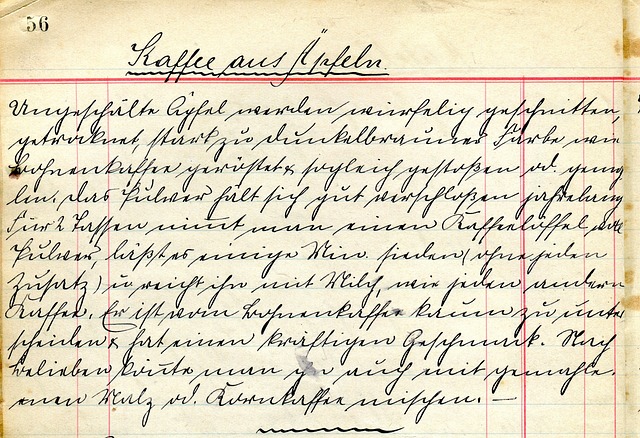 56
Kaffee aus Äpfeln.
Ungeschälte Äpfel werden würfelig geschnitten,
getroknet, stark zu dunkelbrauner Farbe wie
Bohnenkaffee geröstet & sogleich gestoßen od. gemah
len. Das Pulver hält sich gut verschloßen jahrelang
Für 2 Tassen nimt man einen Kaffeelöffel voll
Pulver, läßt es einige Min. sieden (ohne jeden
Zusatz) u reicht ihn mit Milch, wie jeden andern
Kaffee. Er ist vom Bohnenkaffee kaum zu unter
scheiden & hat einen kräftigen Geschmack. Nach
Belieben könte man ihn auch mit gemahle-
nen Malz od. Kornkaffee mischen. —